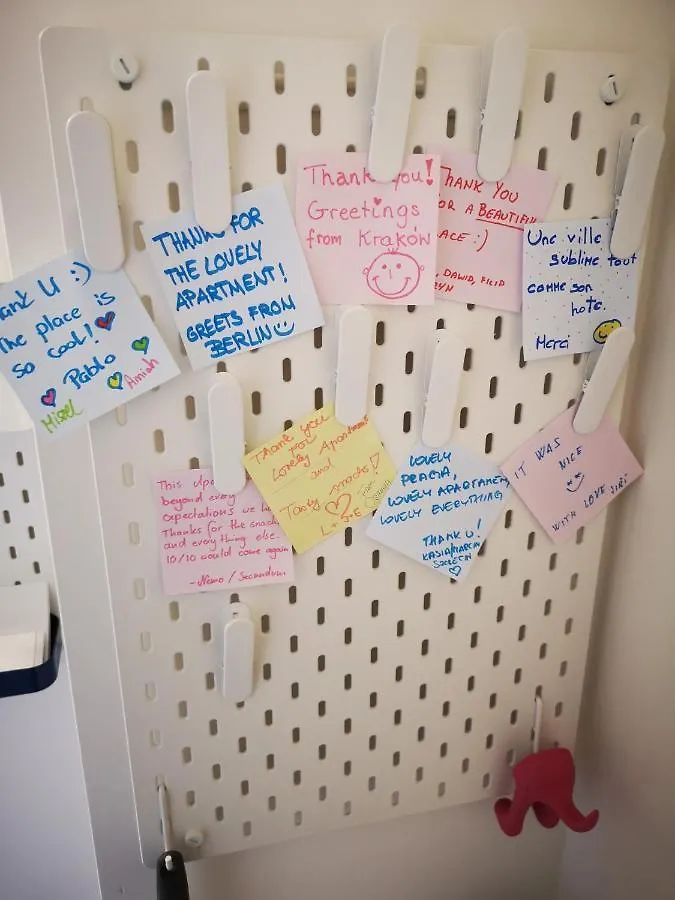 ank U :)
he place is
so cool!
Pablo
Migel
Amiah
THANKS FOR
THE LOVELY
APARTMENT!
GREETS FROM
BERLIN
Thank you!
Greetings
from Kraków
THANK YOU
OR A BEAUTIFUL
ACE :)
, DAWID, FILIP
ZYN
Une ville
sublime tout
comme son
hote.
Merci
This apa
beyond every
expectations we ha
Thanks for the snack
and everything else.
10/10 would come again
- Nemo / Secundum
Thank you
for
Lovely Apartment
and
Tasty snacks!
L + J + E
LOVELY
PEACIA,
LOVELY APARTAMENT,
LOVELY EVERYTHING
THANK U!
KASIA/MARCIN
SZCZECIN
IT WAS
NICE
WITH LOVE